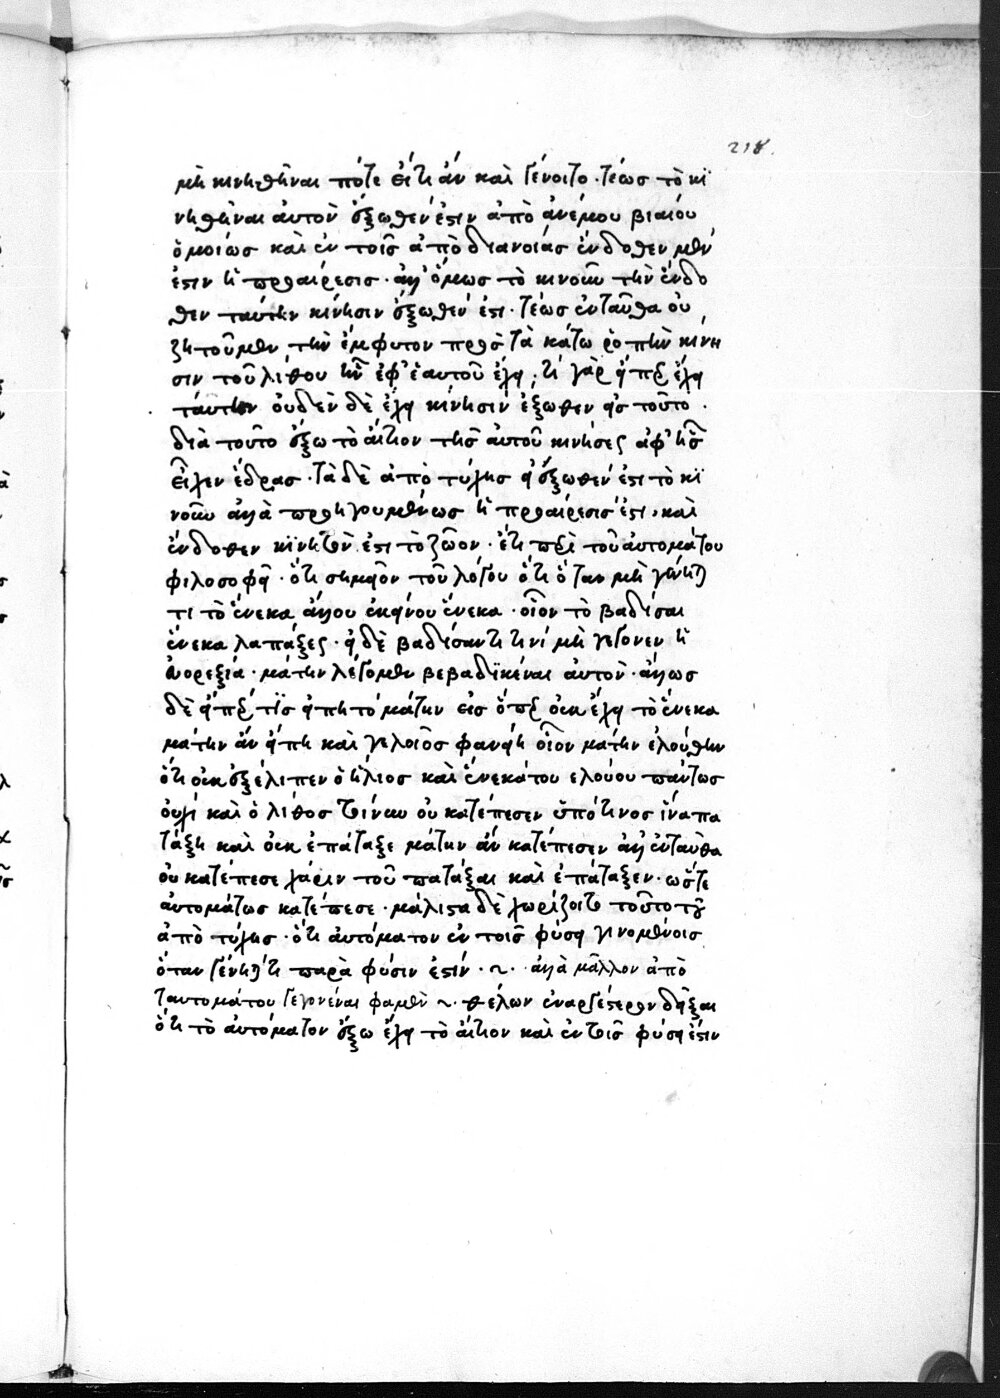 218
μὴ κινηθῆναι πότε εἴ τι ἂν καὶ γένοιτο · τέως τὸ κι
νηθῆναι αὐτὸν ἔξωθεν ἐστὶν ἀπὸ ἀνέμου βιαίου
ὁμοίως καὶ ἐν τοῖς ἀπὸ διανοίας ἔνδοθεν μὲν
ἐστιν ἡ προαίρεσις · ἀλλ' ὅμως τὸ κινοῦν τὴν ἔνδο
θεν ταύτην κίνησιν ἔξωθέν ἐστι · τέως ἐνταῦθα οὐ
ζητοῦμεν τὴν ἔμφυτον πρὸς τὰ κάτω ῥοπὴν κίνη
σιν τοῦ λίθου ἣν ἐφ' ἑαυτοῦ ἔχει, τί γὰρ εἴπερ ἔχει
ταύτην οὐδὲν δὲ ἔχει κίνησιν ἔξωθεν εἰς τοῦτο ·
διὰ τοῦτο ἔξω τὸ αἴτιον τῆς αὐτοῦ κινήσεως ἀφ' ἧς
εἶχεν ἕδρας · τὰ δὲ ἀπὸ τύχης εἰ ἔξωθέν ἐστι τὸ κι
νοῦν ἀλλὰ προηγουμένως ἡ προαίρεσίς ἐστι, καὶ
ἔνδοθεν κινητὸν ἐστι τὸ ζῶον · ἔτι περὶ τοῦ αὐτομάτου
φιλοσοφεῖ · ὅτι σημεῖον τοῦ λόγου ὅτι ὅταν μὴ γένηται
τι τὸ ἕνεκα ἄλλου ἐκείνου ἕνεκα · οἷον τὸ βαδίσαι
ἕνεκα λαπάξεως · εἰ δὲ βαδίσαντι τινὶ μὴ γέγονεν ἡ
ἀνορεξία · μάτην λέγομεν βεβαδικέναι αὐτὸν · ἄλλως
δὲ εἴπερ τὶς εἴπῃ τὸ μάτην εἰς ὅπερ οὐκ ἔχει τὸ ἕνεκα
μάτην ἂν εἴπῃ καὶ γελοῖος φανείη οἷον μάτην ἐλούθην
ὅτι οὐκ ἐξέλιπεν ὁ ἥλιος καὶ ἕνεκα τοῦ ἐλούου πάντως
οὐχὶ καὶ ὁ λίθος τοίνυν οὐ κατέπεσεν ὑπό τινος ἵνα πα
τάξῃ καὶ οὐκ ἐπάταξε μάτην ἂν κατέπεσεν ἀλλ' ἐνταῦθα
οὐ κατέπεσε χάριν τοῦ πατάξαι καὶ ἐπάταξεν · ὥστε
αὐτομάτως κατέπεσε · μάλιστα δὲ χωρίζοιτο τοῦτο τοῦ
ἀπὸ τύχης · ὅτι αὐτόματον ἐν τοῖς φύσει γινομένοις
ὅταν γένηταί τι παρὰ φύσιν ἐστίν · ~ · ἀλλὰ μᾶλλον ἀπὸ
ταυτομάτου γεγονέναι φαμὲν ~ · θέλων ἐναργέστερον δεῖξαι
ὅτι τὸ αὐτόματον ἔξω ἔχει τὸ αἴτιον καὶ ἐν τοῖς φύσει ἐστὶν